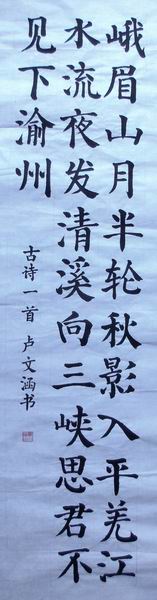 峨眉山月半轮秋影入平羌江
水流夜发清溪向三峡思君不
见下渝州
古诗一首 卢文涵书